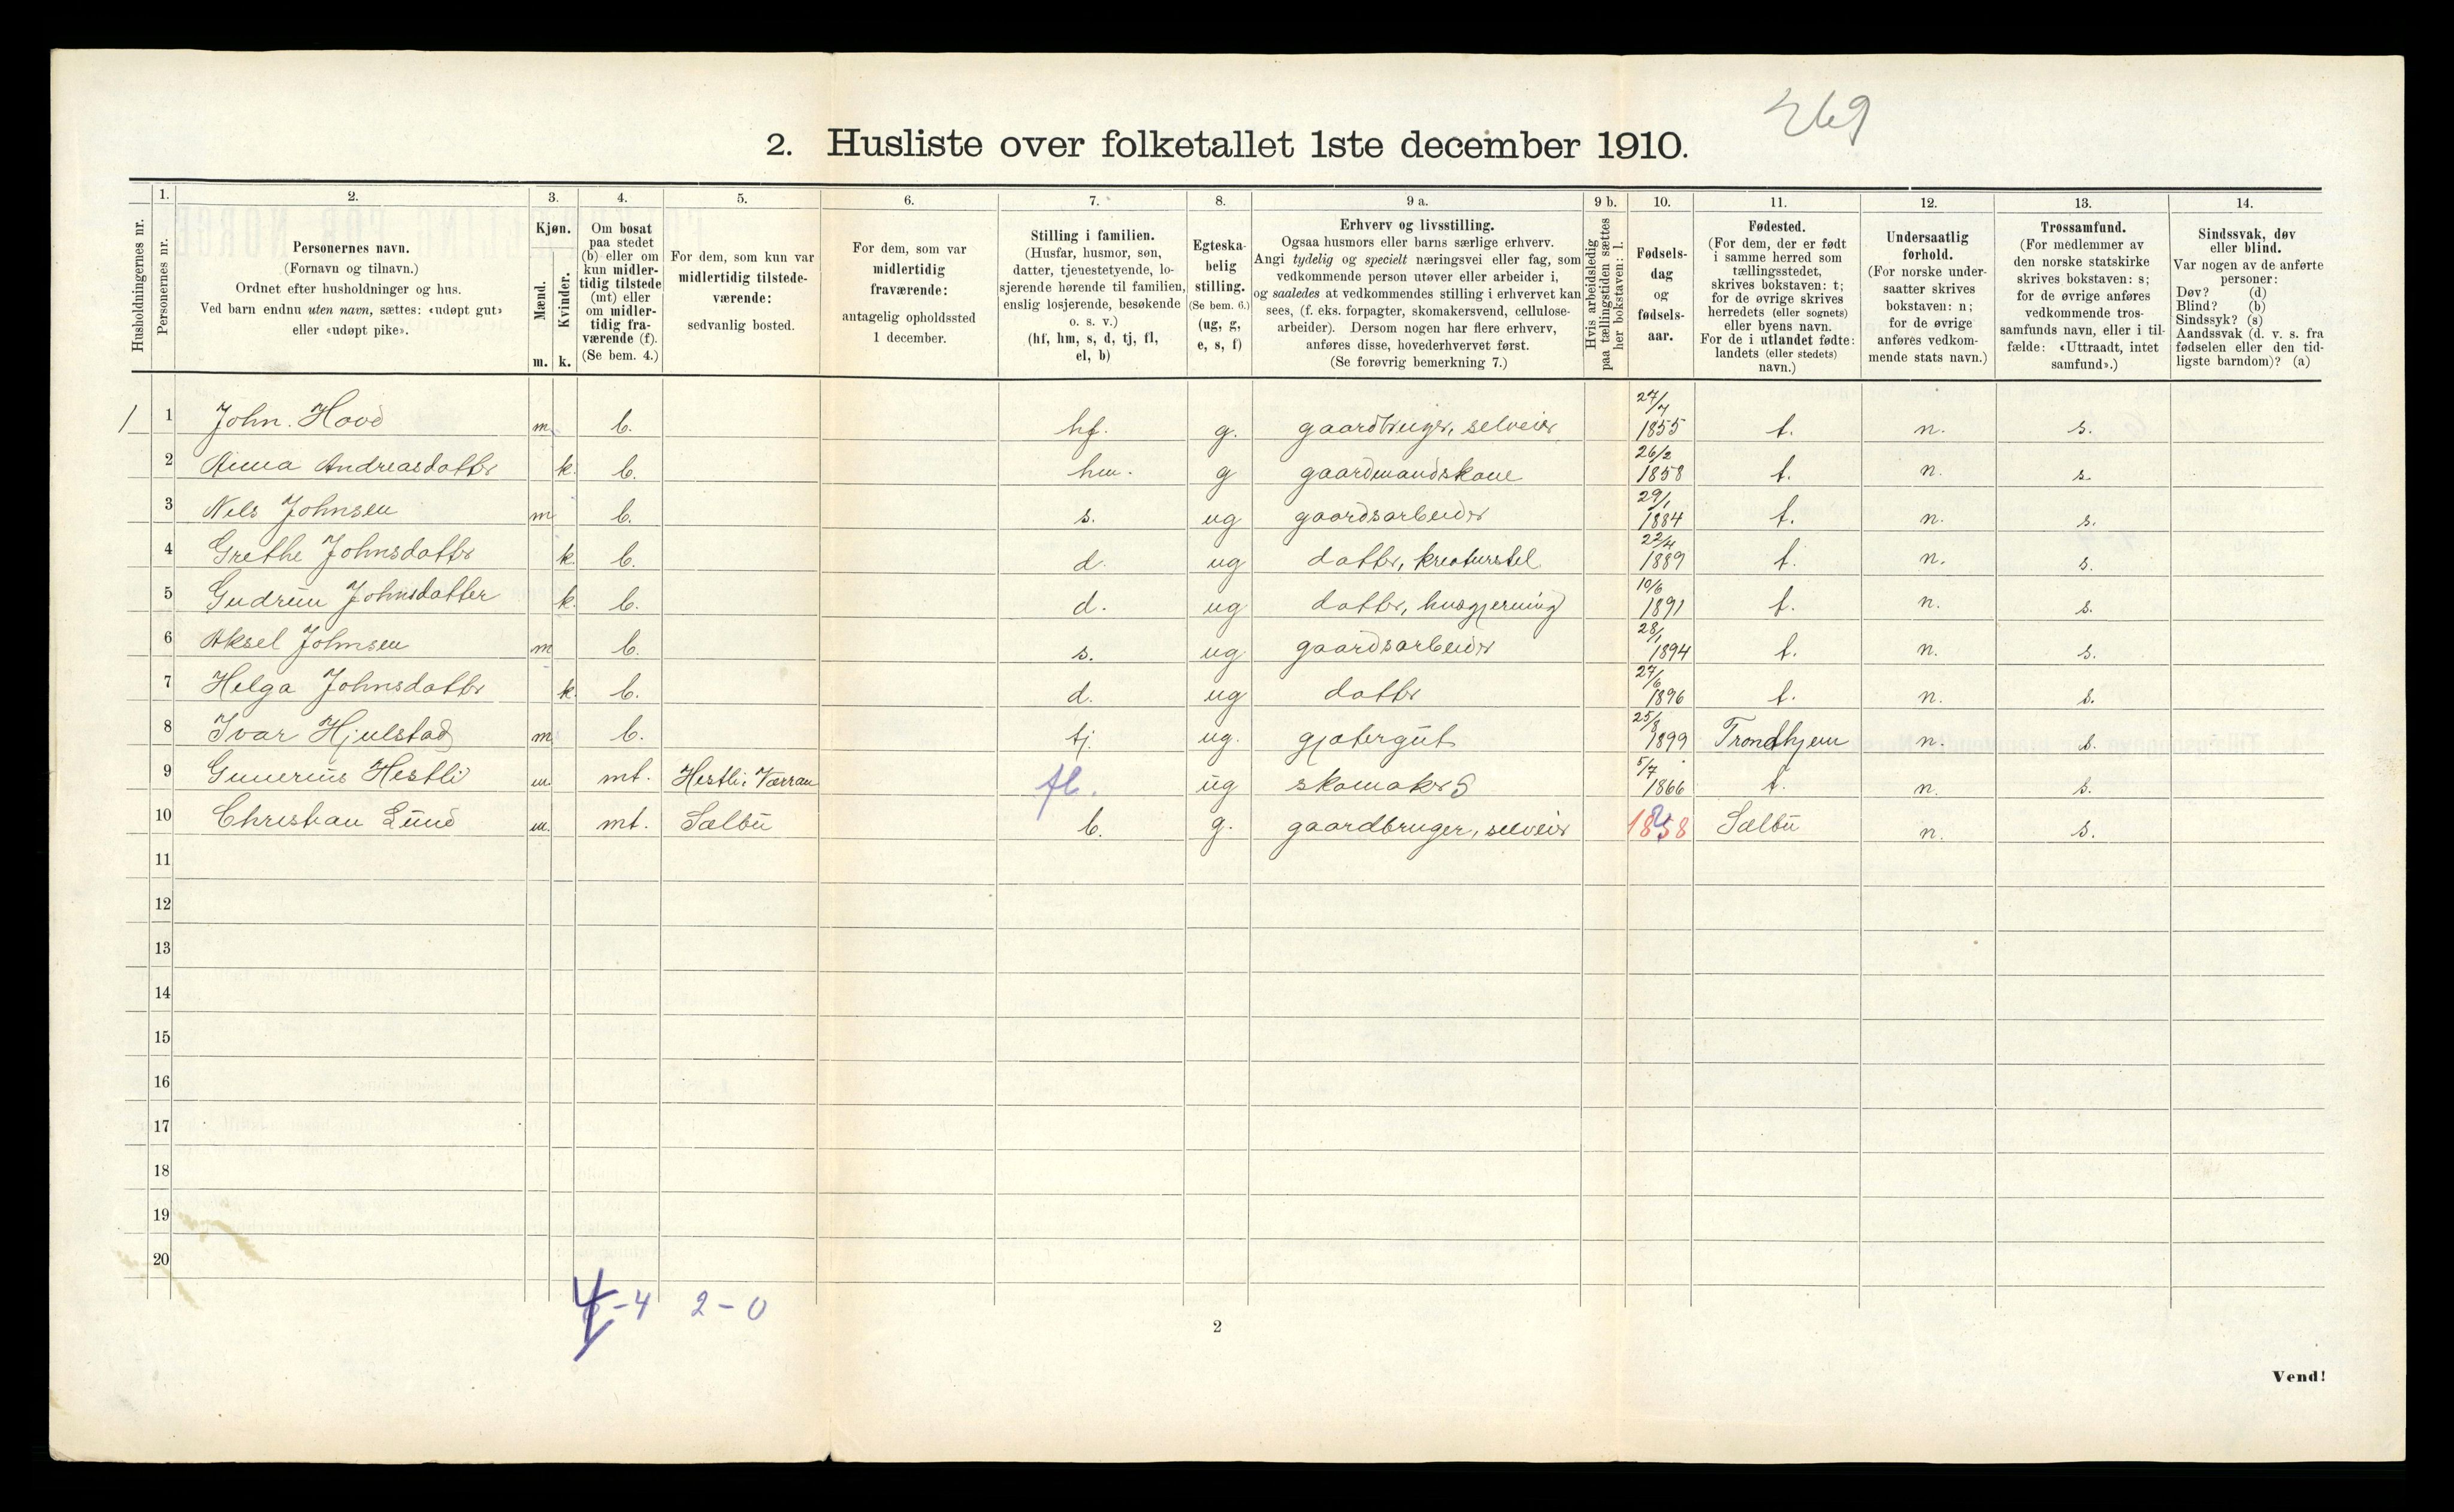 269
2. Husliste over folketallet 1ste december 1910.
Husholdningernes nr.
1.
Personernes nr.
2.
Personernes navn.
(Fornavn og tilnavn.)
Ordnet efter husholdninger og hus.
Ved barn endnu uten navn, sættes: «udøpt gut»
eller «udøpt pike».
3.
Kjøn.
Mænd.
Kvinder.
m. k.
4.
Om bosat
paa stedet
(b) eller om
kun midler-
tidig tilstede
(mt) eller
om midler-
tidig fra-
værende (f).
(Se bem. 4.)
5.
For dem, som kun var
midlertidig tilstede-
værende:
sedvanlig bosted.
6.
For dem, som var
midlertidig
fraværende:
antagelig opholdssted
1 december.
7.
Stilling i familien.
(Husfar, husmor, søn,
datter, tjenestetyende, lo-
sjerende hørende til familien,
enslig losjerende, besøkende
o. s. v.)
(hf, hm, s, d, tj, fl,
el, b)
8.
Egteska-
belig
stilling.
(Se bem. 6.)
(ug, g,
e, s, f)
9 a.
Erhverv og livsstilling.
Ogsaa husmors eller barns særlige erhverv.
Angi tydelig og specielt næringsvei eller fag, som
vedkommende person utøver eller arbeider i,
og saaledes at vedkommendes stilling i erhvervet kan
sees, (f. eks. forpagter, skomakersvend, cellulose-
arbeider). Dersom nogen har flere erhverv,
anføres disse, hovederhvervet først.
(Se forøvrig bemerkning 7.)
9 b.
Hvis arbeidsledig
paa tællingstiden sættes
her bokstaven: l.
10.
Fødsels-
dag
og
fødsels-
aar.
11.
Fødested.
(For dem, der er født
i samme herred som
tællingsstedet,
skrives bokstaven: t;
for de øvrige skrives
herredets (eller sognets)
eller byens navn.
For de i utlandet fødte:
landets (eller stedets)
navn.)
12.
Undersaatlig
forhold.
(For norske under-
saatter skrives
bokstaven: n;
for de øvrige
anføres vedkom-
mende stats navn.)
13.
Trossamfund.
(For medlemmer av
den norske statskirke
skrives bokstaven: s;
for de øvrige anføres
vedkommende tros-
samfunds navn, eller i til-
fælde: «Uttraadt, intet
samfund».)
14.
Sindssvak, døv
eller blind.
Var nogen av de anførte
personer:
Døv? (d)
Blind? (b)
Sindssyk? (s)
Aandssvak (d. v. s. fra
fødselen eller den tid-
ligste barndom)? (a)
1 1 John. Hovd m. b. hf. g. gaardbruger, selveier 27/7 1855 t. n. s.
2 Anna Andreasdatter k. b. hm. g gaardmandskone 26/2 1858 t. n. s.
3 Nels Johnsen m b. s. ug gaardsarbeider 29/1 1884 t. n. s.
4 Grethe Johnsdatter k. b. d. ug datter, kreaturstel 22/4 1889 t. n. s.
5 Gudrun Johnsdatter k. b. d. ug datter, husgjerning 10/6 1891 t. n. s.
6 Aksel Johnsen m b. s. ug gaardsarbeider 28/1 1894 t. n. s.
7 Helga Johnsdatter k. b. d. ug datter 27/6 1896 t. n. s.
8 Ivar Hjulstad m. b. tj. ug. gjætergut 25/8 1899 Trondhjem n. s.
9 Gunerius Hestli m. mt. Hestli i Værran fl. ug skomaker S 5/7 1866 t. n. s.
10 Christian Lund m. mt. Sælbu b. g. gaardbruger, selveier 1858 Sælbu n. s.
11
12
13
14
15
16
17
18
19
20
4-4 2-0
2
Vend!